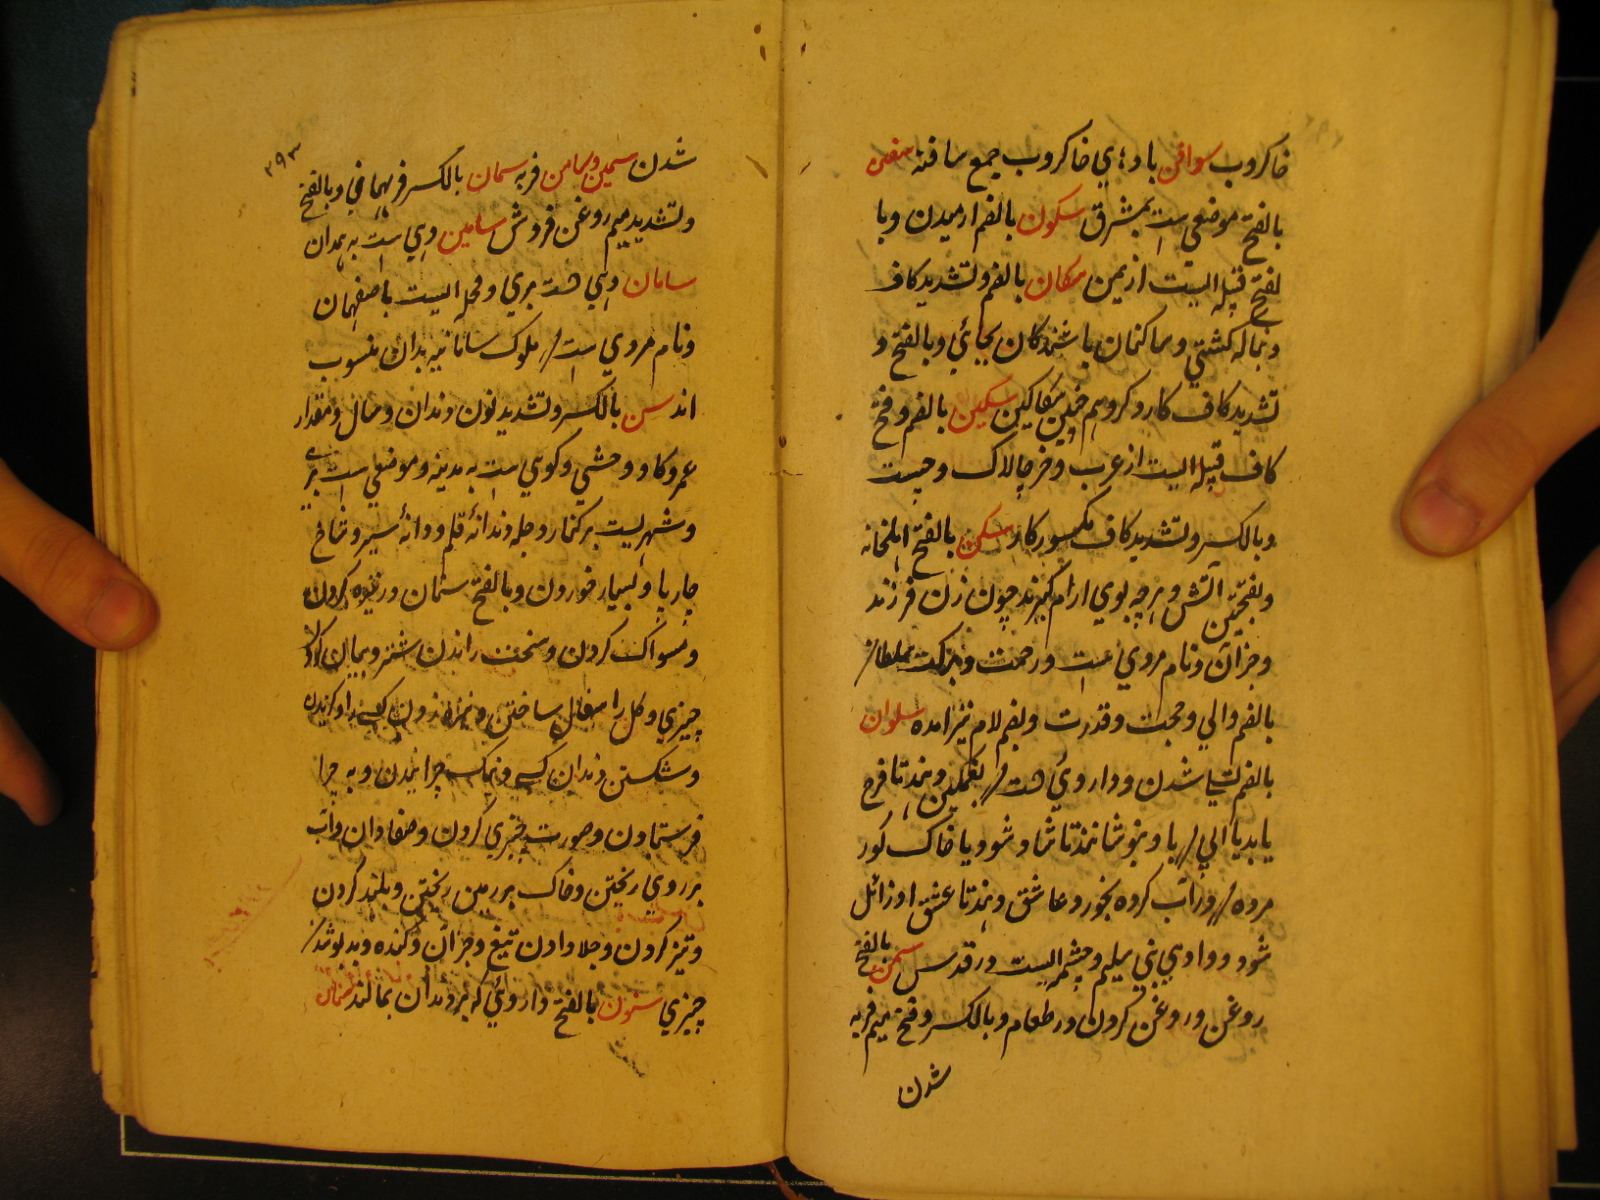 خاکروب سوافن بادهای خاکروب جمع سافنه سفن
بالفتح موضعی است بمشرق سکون بالضم ارمیدن و با
لفتح قبیله ایست از یمن سکان بالضم و تشدید کاف
دنباله کشتی و ساکنان باشندکان بجائی و بالفتح و
تشدید کاف کارد کر و سم چنین سکاکین سکین بالضم و فتح
کاف قبیله ایست از عرب و خر چالاک و چست
و بالکسر و تشدید کاف مکسور کارد سکن بالفتح اهلخانه
و بفتحتین اتش و هرچه بوی ارام کیرند چون زن فرزند
و جزان و نام مردی است و رحمت و برکت سلطان
بالضم والی و حجت و قدرت و بضم لام نیز امده سلوان
بالضم تسلی شدن و داروئی هست که بغمکین دهند تا فرح
یابد یا ابی که با و بنوشانند تا شاد شود یا خاک کور
مرده که در اب کرده بخورد عاشق دهند تا عشق او زائل
شود و وادیی بنی سلیم و چشمه ایست در قدس سمن بالفتح
روغن و روغن کردن در طعام و بالکسر و فتح میم فربه
شدن
۲۹۳
شدن سمین و سامن فربه سمان بالکسر فربهها فی و بالفتح
و تشدید میم روغن فروش سامین دهی است به همدان
سامان دهی هست بری و محله ایست باصفهان
و نام مردی است که ملوک سامانیه بدان منسوب
اند سن بالکسر و تشدید نون دندان و سال و مقدار
عمر و کاو وحشی و کوهی است به مدینه و موضعی است بری
و شهریست بر کنار دجله و دندانهٔ قلم و دانهٔ سیر و شاخ
چارپا و بسیار خوردن و بالفتح سنان در نیزه کردن
و مسواک کردن و سخت راندن شتر و بمالیدن
چیزی و کل را سفال ساختن و نیزه زدن کسی را و کزیدن
و شکستن دندان کسی و نیک چرانیدن و به چرا
فرستادن و صورت چیزی کردن و صفا دادن و اب
بر روی ریختن و خاک بر زمین ریختن و بلند کردن
و تیز کردن و جلا دادن تیغ و جزان و کنده و بد بو شدن
چیزی سنون بالفتح داروئی که بر دندان بمالند سنان